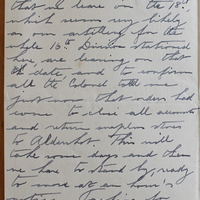 that we leave on the 18th,
which seems very likely
as our artillery for the
whole 16th Division stationed
here are leaving on that
date, and to confirm
all the Colonel told me
just now that orders had
come to close all accounts
and return surplus stores
to Aldershot. This will
take some days and then
we have to stand by, ready
to move at an hour's